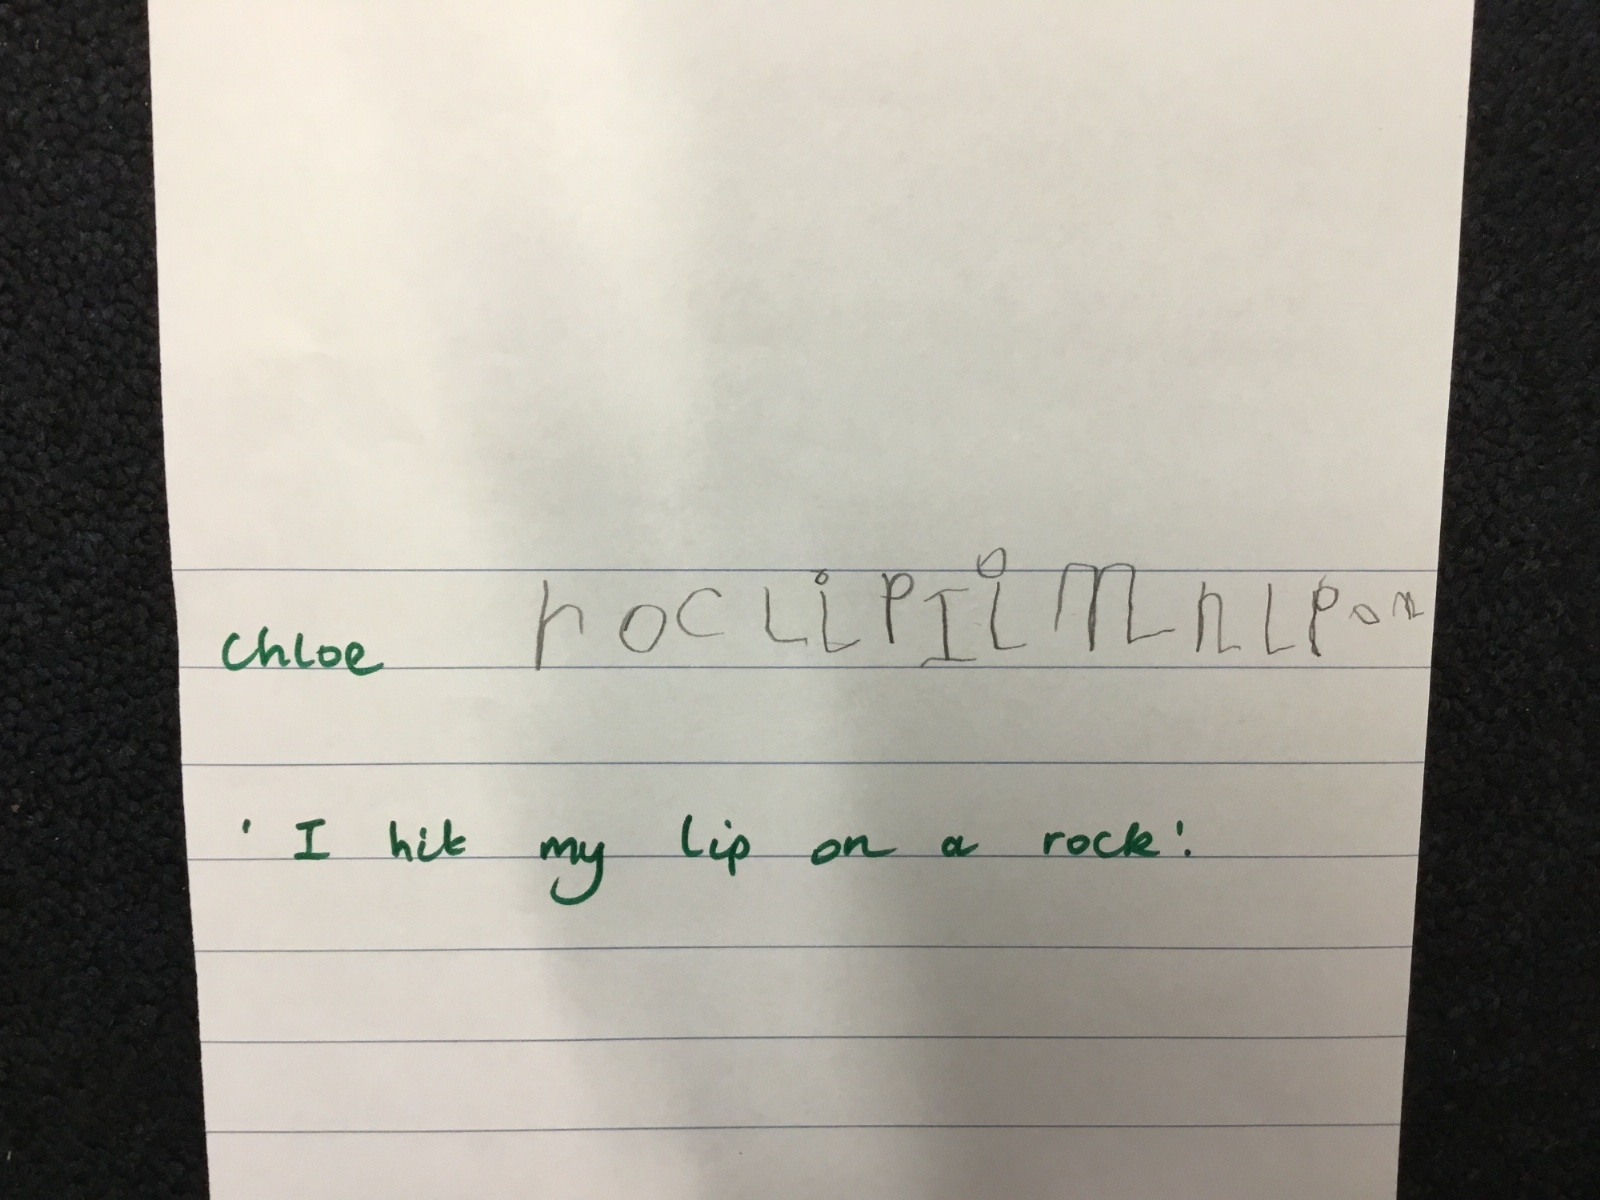 Chloe roc LiPIi m n lp on
' I hit my lip on a rock'.